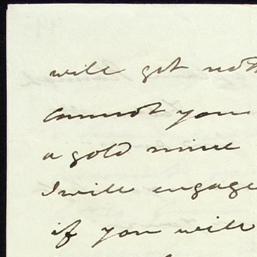 will get not
cannot you
a gold mine
I will engage
if you will